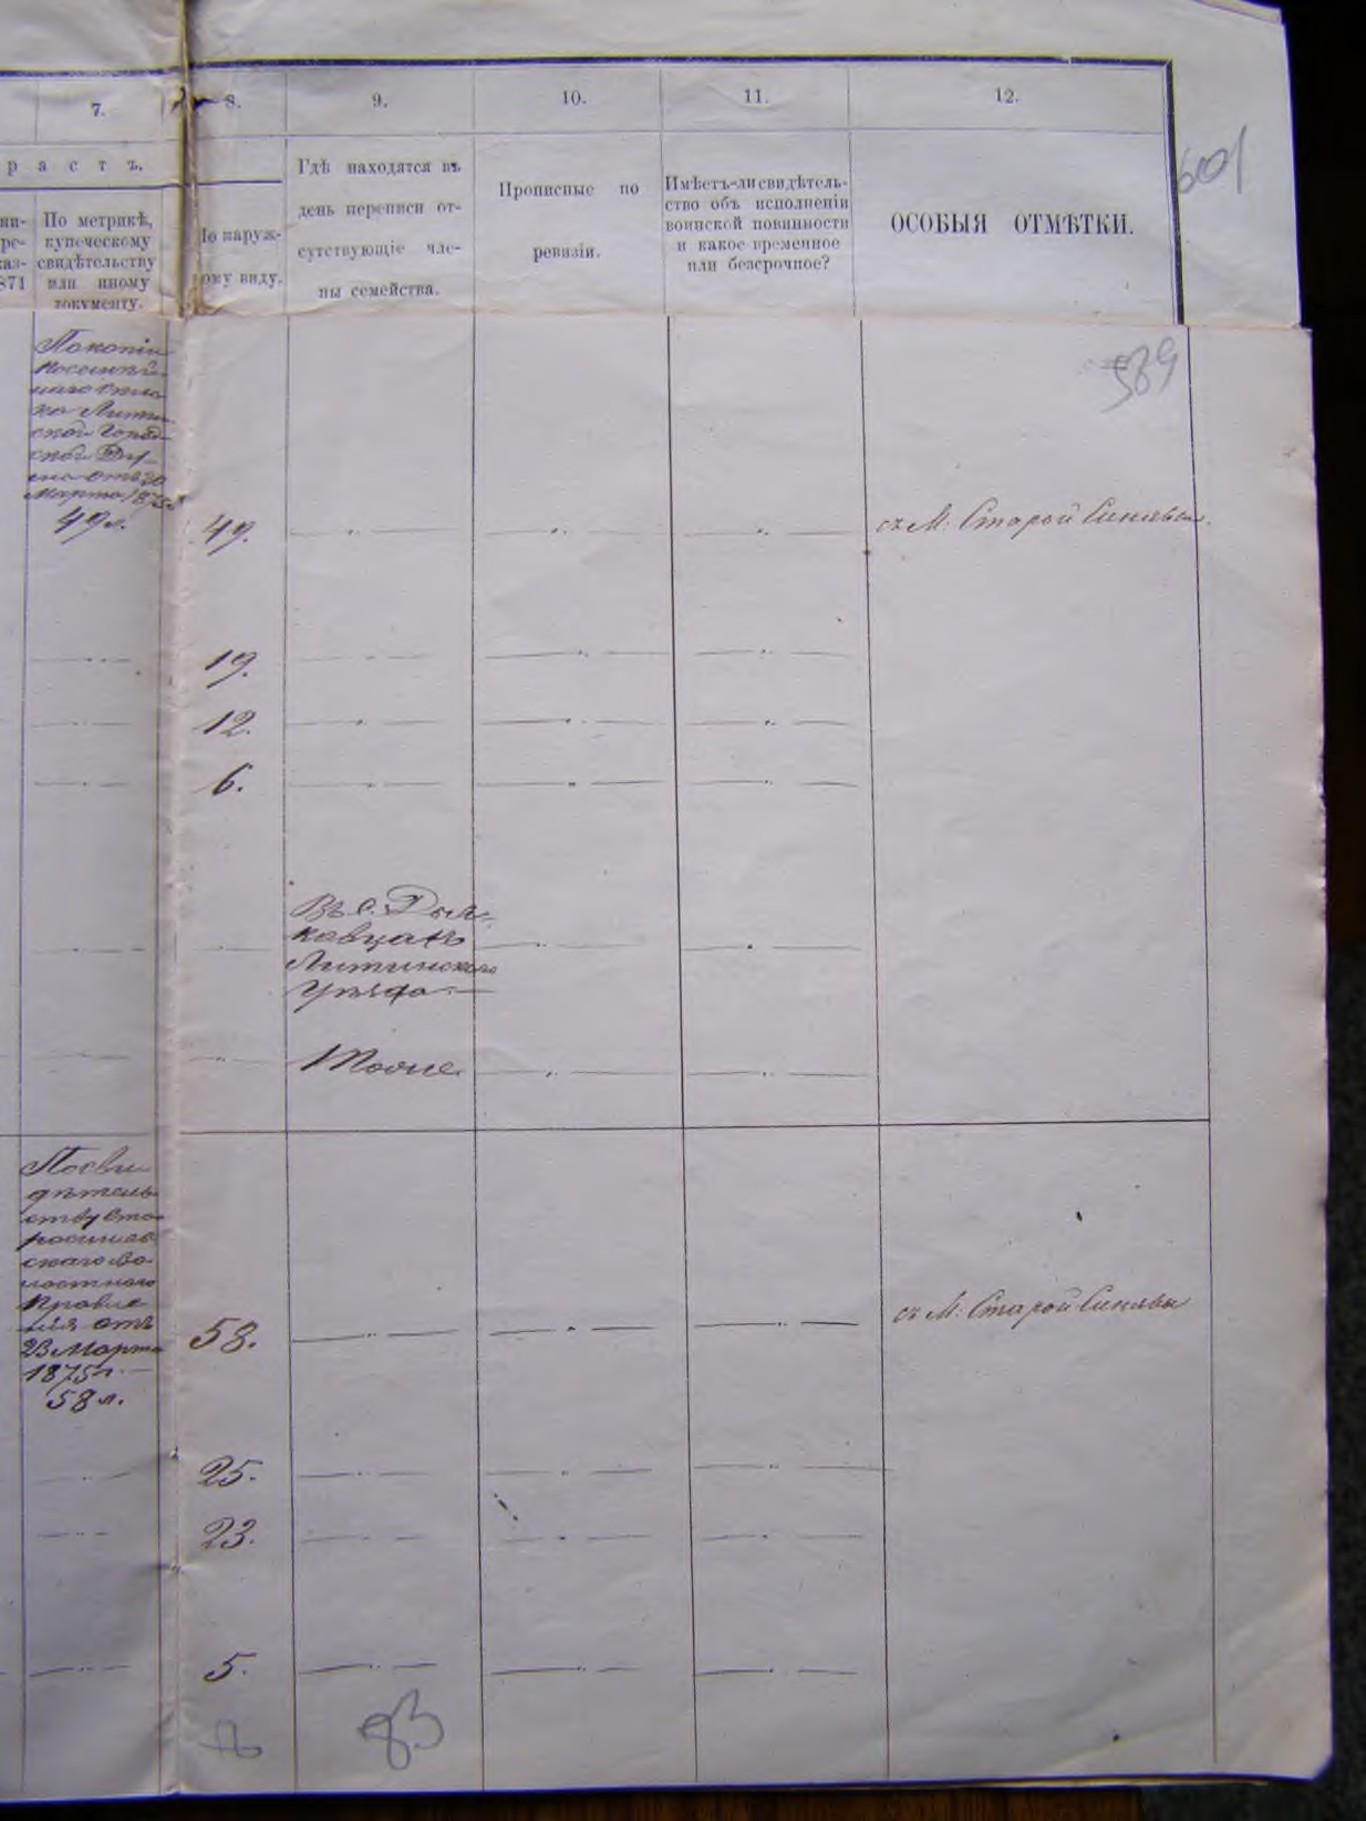 7.
8.
9.
10.
11.
12.
601
р а с т ъ.
По метрикѣ,
купеческому
свидѣтельству
или иному
документу.
По наруж-
ному виду.
Гдѣ находятся въ
день переписи от-
сутствующіе чле-
ны семейства.
Прописные по
ревизіи.
Имѣетъ-ли свидѣтель-
ство объ исполненіи
воинской повинности
и какое временное
или безсрочное?
ОСОБЫЯ ОТМѢТКИ.
871
589
По копіи
Литин
ской Город
ской Ду
мы отъ 20
Марта 1875
49 л.
49.
съ М. Старой Синявы.
19.
12.
6.
Въ с.
кавцахъ
Литинскаго
Уѣзда
Тоже
По сви
дѣтель
ству Ста
росиняв
скаго во
лостнаго
Правле
нія отъ
23 Марта
1875 г.
58 л.
58.
съ М. Старой Синявы
25.
23.
5.
83